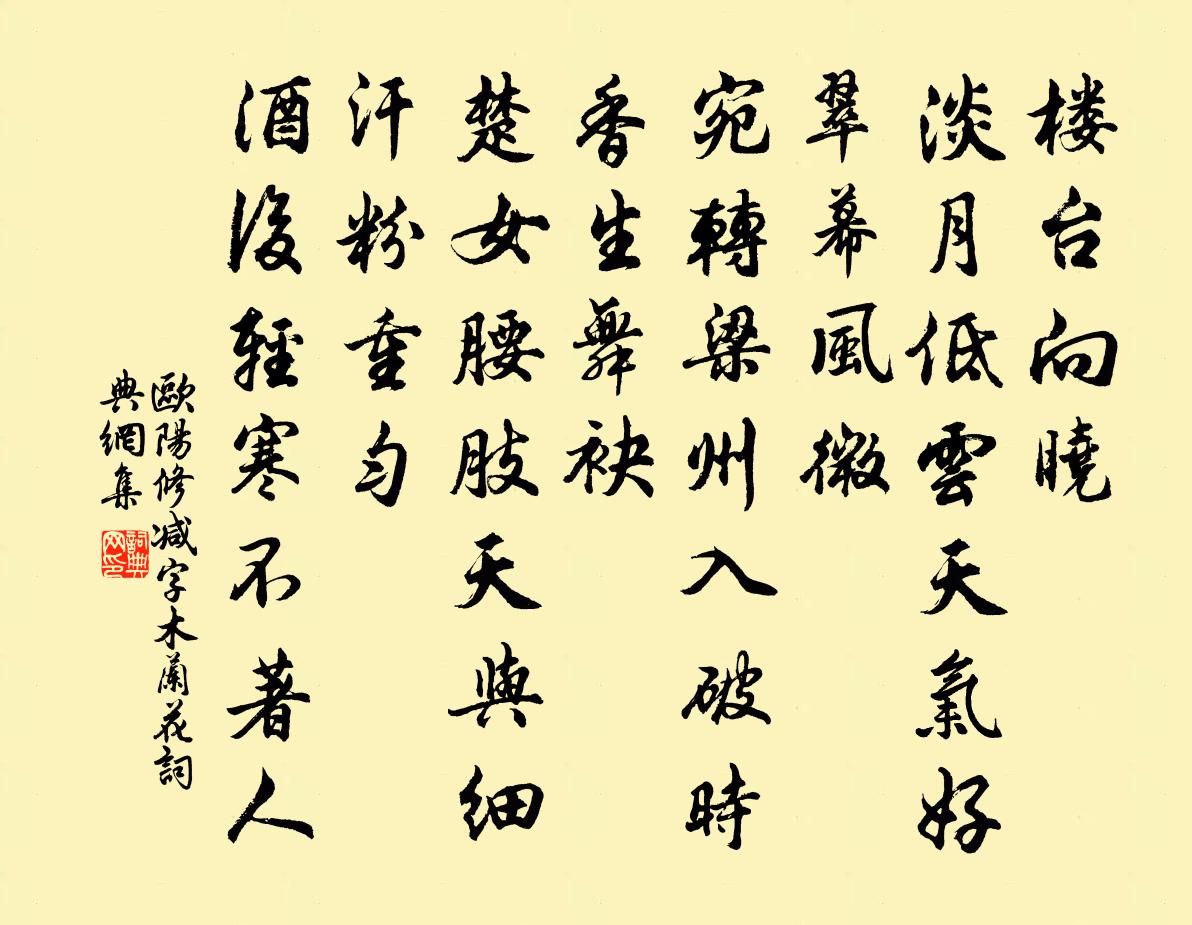 楼台向曉
淡月低雲天氣好
翠幕風微
宛轉梁州入破時
香生舞袂
楚女腰肢天與細
汗粉重匀
酒後輕寒不著人
歐陽修减字木蘭花詞
典網集
詞典網印